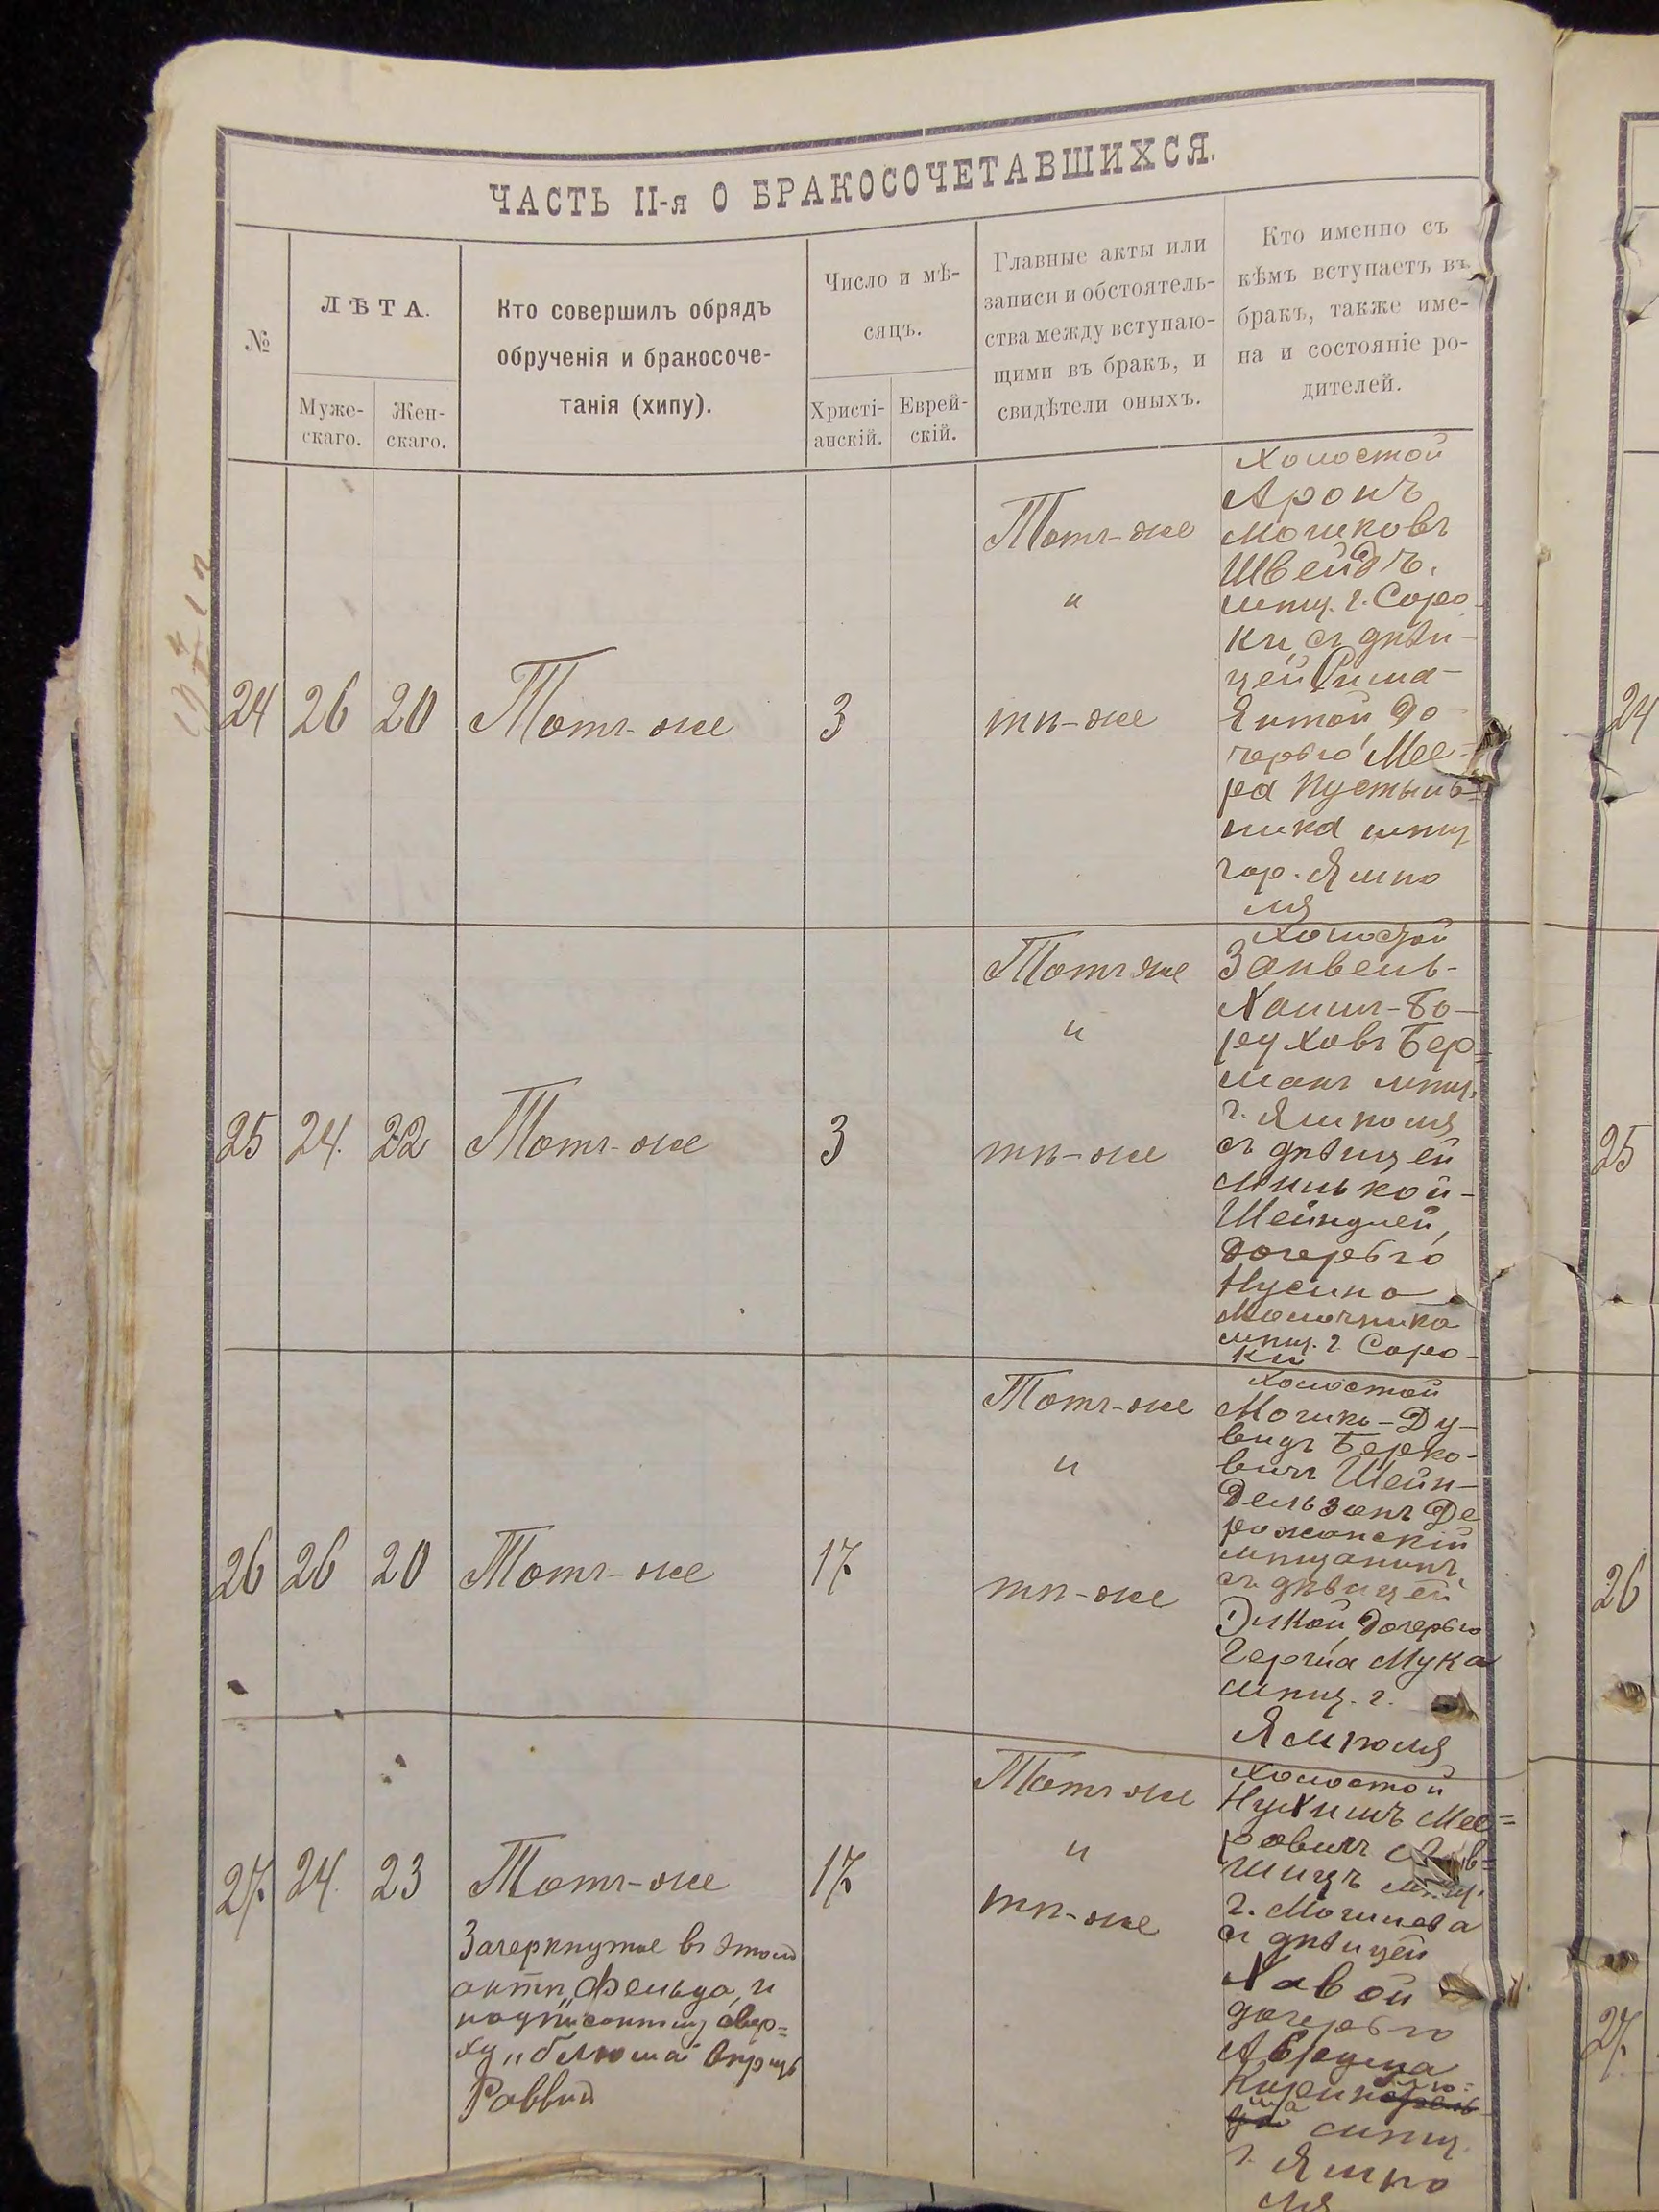 ЧАСТЬ II-я О БРАКОСОЧЕТАВШИХСЯ.
№
ЛѢТА.
Муже-
скаго.
Жен-
скаго.
Кто совершилъ обрядъ
обрученія и бракосоче-
танія (хипу).
Число и мѣ-
сяцъ.
Христі-
анскій.
Еврей-
скій.
Главные акты или
записи и обстоятель-
ства между вступаю-
щими въ бракъ, и
свидѣтели оныхъ.
Кто именно съ
кѣмъ вступаетъ въ
бракъ, также име-
на и состояніе ро-
дителей.
24 26 20 Тотъ-же 3
Тотъ-же
"
тѣ-же
Холостой
Аронъ
Мошковъ
Швейдъ,
мѣщ. г. Соро-
ки, съ дѣви-
цей
Ентой, до
черью Мее-
ра Пустыль-
ника мѣщ
гор. Ямпо
ля
25 24. 22 Тотъ-же 3
Тотъ же
"
тѣ-же
Холостой
Занвель-
Хаимъ-Бо-
руховъ Бер-
манъ мѣщ.
г. Ямполя
съ дѣвицей
Минькой-
Шейндлей,
дочерью
Нусина
Молочника
мѣщ. г. Соро-
ки
26 26 20 Тотъ-же 17
Тотъ-же
"
тѣ-же
Холостой
Мошко-Ду-
видъ Берко-
вичъ Шейн-
дельзонъ Де
ражанскій
мѣщанинъ,
съ дѣвицей
Элкой дочерью
Гершка Мука
мѣщ. г.
Ямполя
27. 24. 23 Тотъ-же 17
Зачеркнутое въ этомъ
актѣ „Фельда" и
надписанному сверь=
ху „блюма" вѣрить
Раввин
Тотъ же
"
тѣ-же
Холостой
Нухимъ Мее=
ровичъ
шицъ мѣщ.
г. Могилева
съ дѣвицей
Хавой
дочерью
Аврума
мѣщ.
г. Ямпо
ля
24
25
26
27.